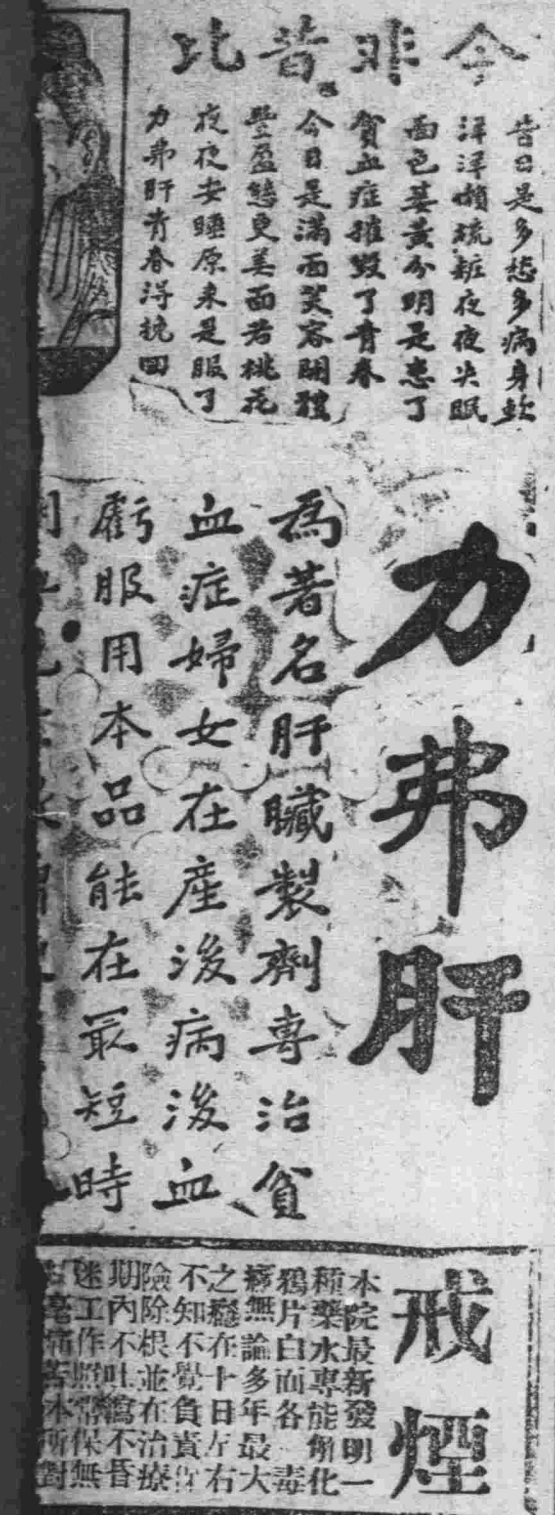 今非昔比
昔日是多愁多病身軟
洋洋懶梳粧夜夜失眠
面色萎黃分明是患了
貧血症摧毀了青春
今日是滿面笑容關體
豐盈態更美面若桃花
夜夜安睡原來是服了
力弗肝青春得挽回
力弗肝
為著名肝臟製劑專治貧
血症婦女在產後病後血
虧服用本品能在最短時
戒煙
本院最新發明一
種藥水專能解化
鴉片白面各毒
癮無論多年最大
之癮在十日左右
不知不覺負責
險除根並在治療
期內不吐瀉不昏
迷工作照常保無
毫痛苦本所對